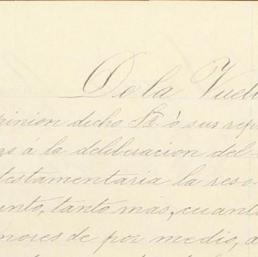 De la Vuelt
pinion dicho Sr. ó sus repr
as á la deliberacion del
testamentaria la reso
unto, tanto mas, cuanto
nores de por medio, a